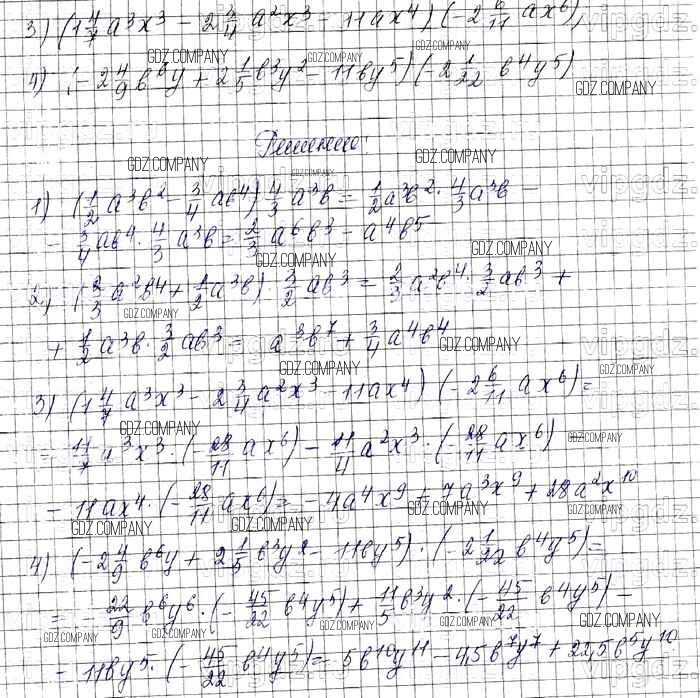 3) (1 4/7 a³x³ − 2 3/4 a²x³ − 11ax⁴)(−2 6/11 ax⁶);
4) (−2 4/9 b⁶y + 2 1/5 b³y² − 11by⁵)(−2 1/22 b⁴y⁵)
Решение:
1) (1/2 a³b² − 3/4 ab⁴) 4/3 a³b = 1/2 a³b² · 4/3 a³b −
− 3/4 ab⁴ · 4/3 a³b = 2/3 a⁶b³ − a⁴b⁵
2) (2/3 a²b⁴ + 1/2 a³b) · 3/2 ab³ = 2/3 a²b⁴ · 3/2 ab³ +
+ 1/2 a³b · 3/2 ab³ = a³b⁷ + 3/4 a⁴b⁴
3) (1 4/7 a³x³ − 2 3/4 a²x³ − 11ax⁴) (−2 6/11 ax⁶) =
= 11/7 a³x³ · (− 28/11 ax⁶) − 11/4 a²x³ · (− 28/11 ax⁶)
− 11ax⁴ · (− 28/11 ax⁶) = −4a⁴x⁹ + 7a³x⁹ + 28a²x¹⁰
4) (−2 4/9 b⁶y + 2 1/5 b³y² − 11by⁵) · (−2 1/22 b⁴y⁵) =
= − 22/9 b⁶y⁶ · (− 45/22 b⁴y⁵) + 11/5 b³y² · (− 45/22 b⁴y⁵) −
− 11by⁵ · (− 45/22 b⁴y⁵) = 5b¹⁰y¹¹ − 4,5b⁷y⁷ + 22,5b⁵y¹⁰
GDZ.COMPANY
vipgdz